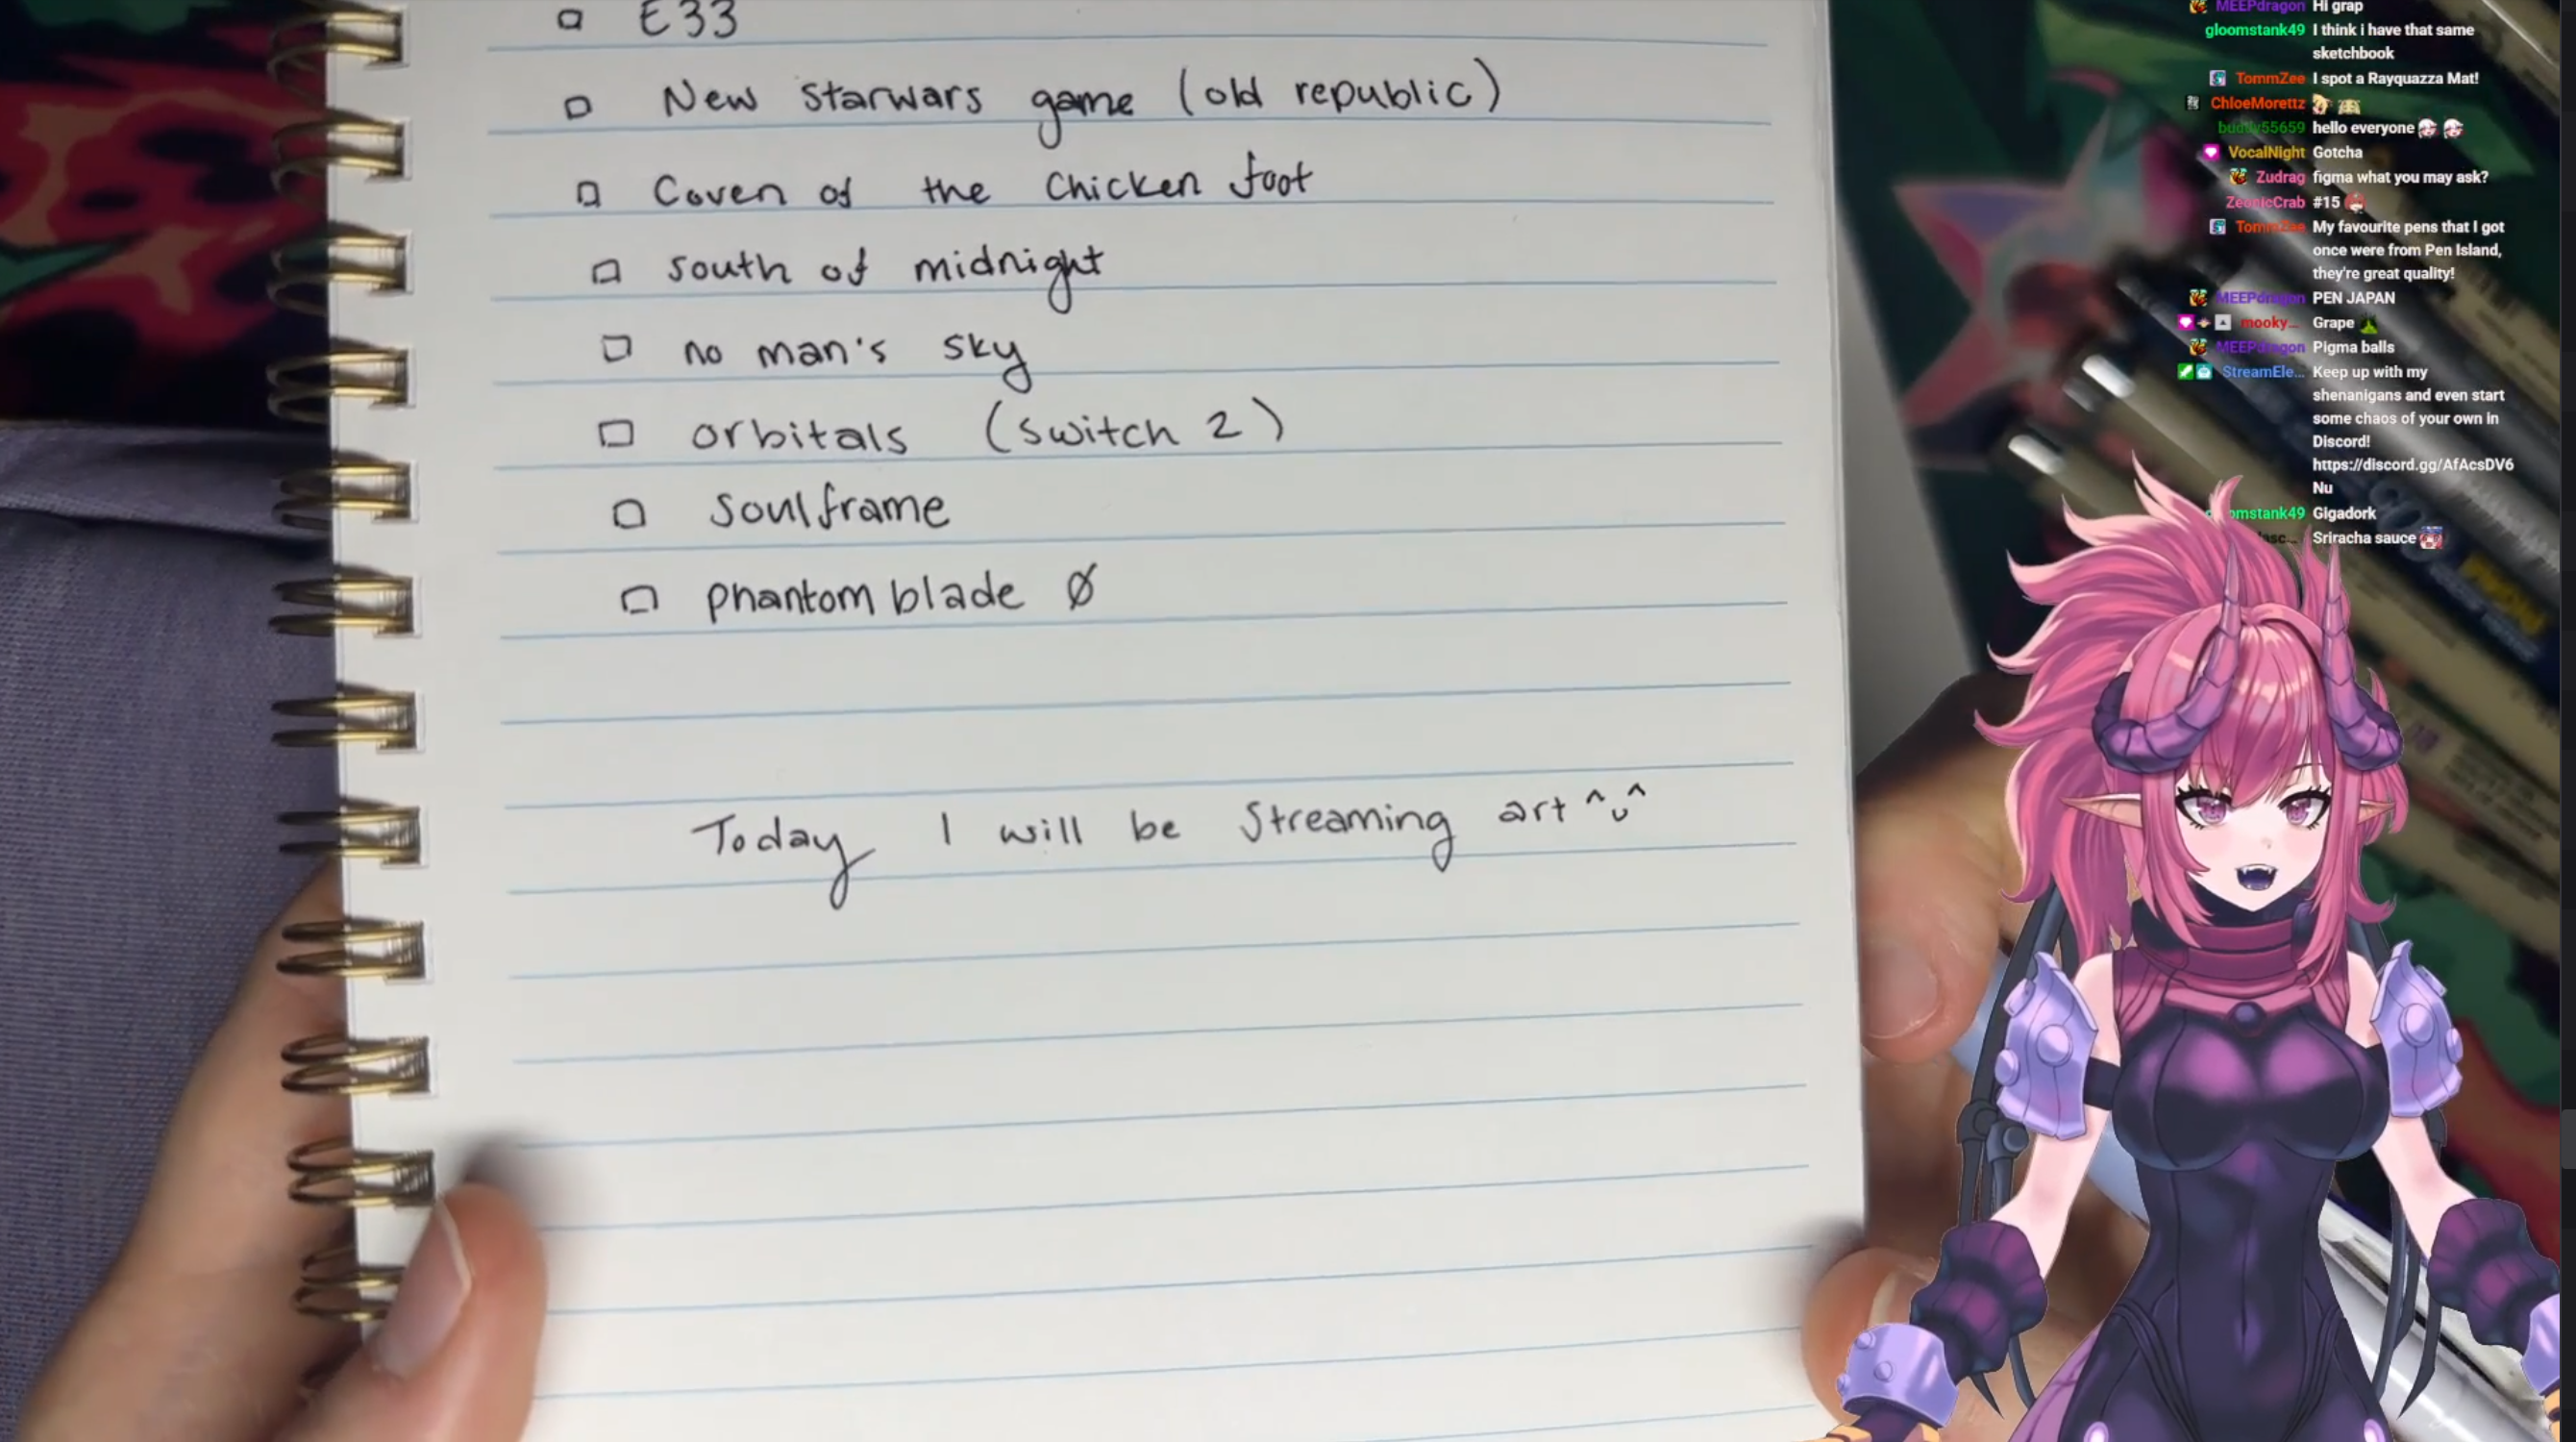 E33
New starwars game (old republic)
Coven of the Chicken foot
south of midnight
no man's sky
orbitals (switch 2)
soulframe
phantom blade Ø
Today I will be streaming art ^u^
MEEPdragon Hi grap
gloomstank49 I think i have that same
sketchbook
TommZee I spot a Rayquazza Mat!
ChloeMorettz
buddy55659 hello everyone
VocalNight Gotcha
Zudrag figma what you may ask?
ZeonicCrab #15
TommZee My favourite pens that I got
once were from Pen Island,
they're great quality!
MEEPdragon PEN JAPAN
mooky... Grape
MEEPdragon Pigma balls
StreamEle... Keep up with my
shenanigans and even start
some chaos of your own in
Discord!
https://discord.gg/AfAcsDV6
Nu
omstank49 GIgadork
Sriracha sauce